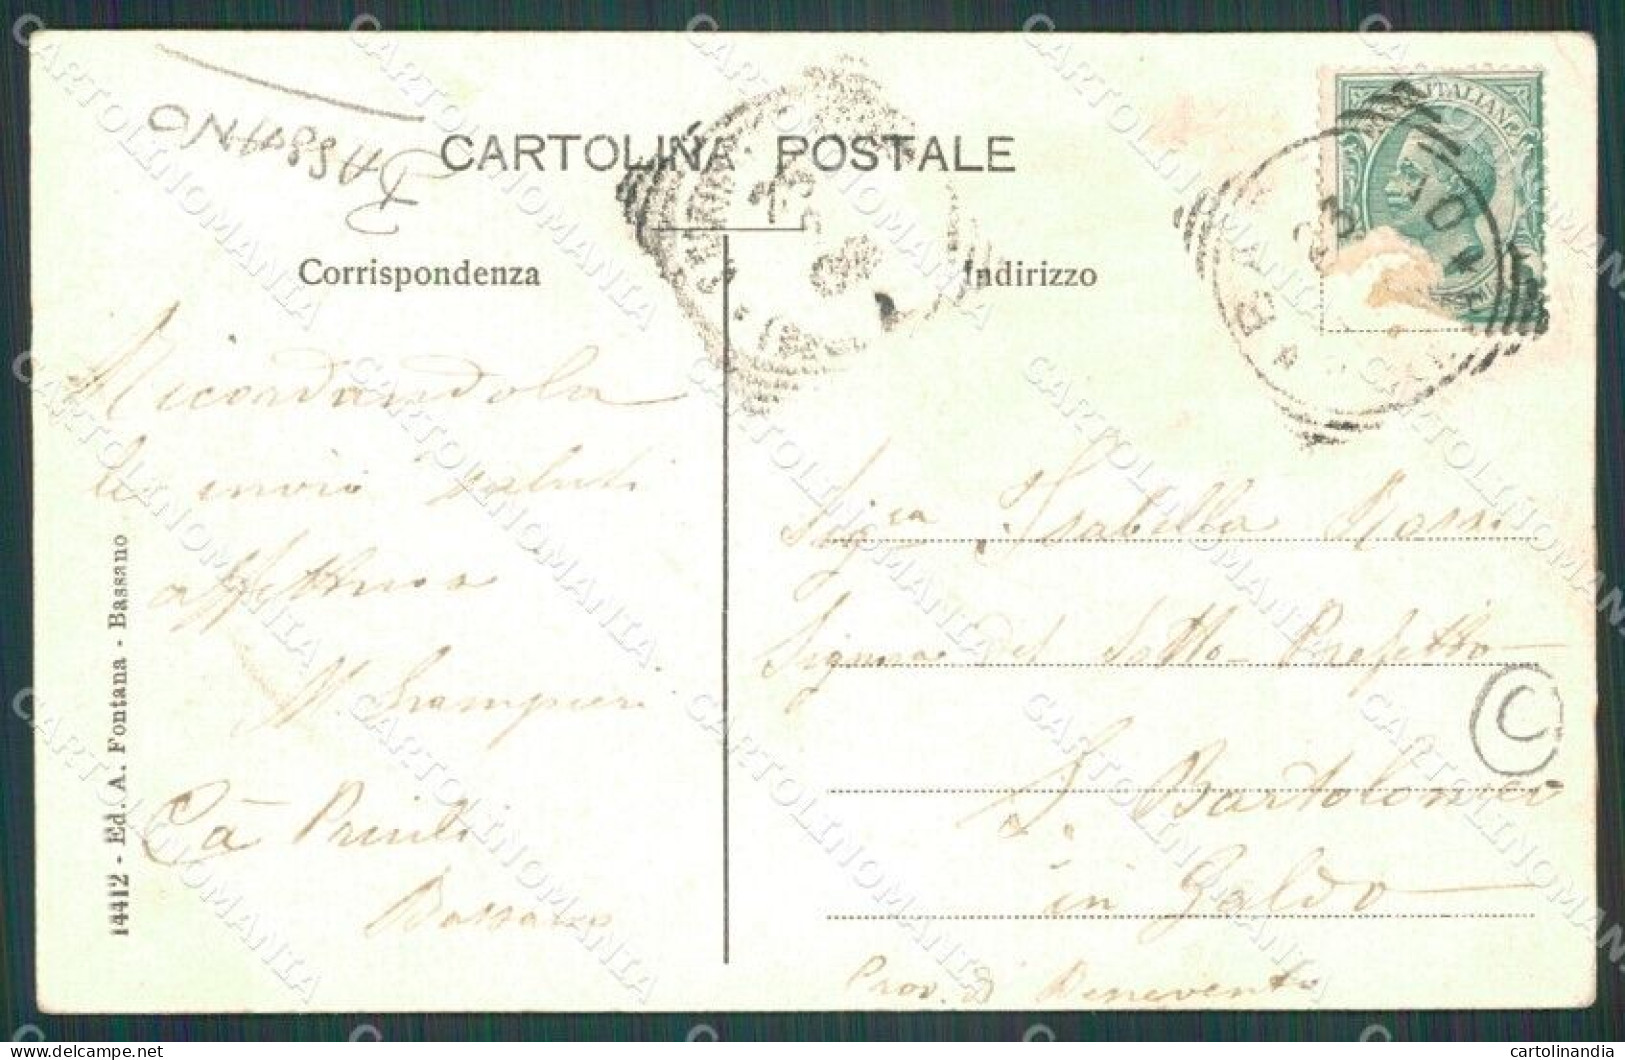 BASSANO
CARTOLINA POSTALE
Corrispondenza
Indirizzo
ITALIANE
Ricordandola
le invio saluti
affettuosi
Ca Priuli
Bassano
Sig.ra Isabella Rossi
Signora del Sotto-Prefetto
S. Bartolomeo
in Galdo
Prov. di Benevento
C
14412 - Ed. A. Fontana - Bassano
CARTOLINOMANIA
cartolinandia